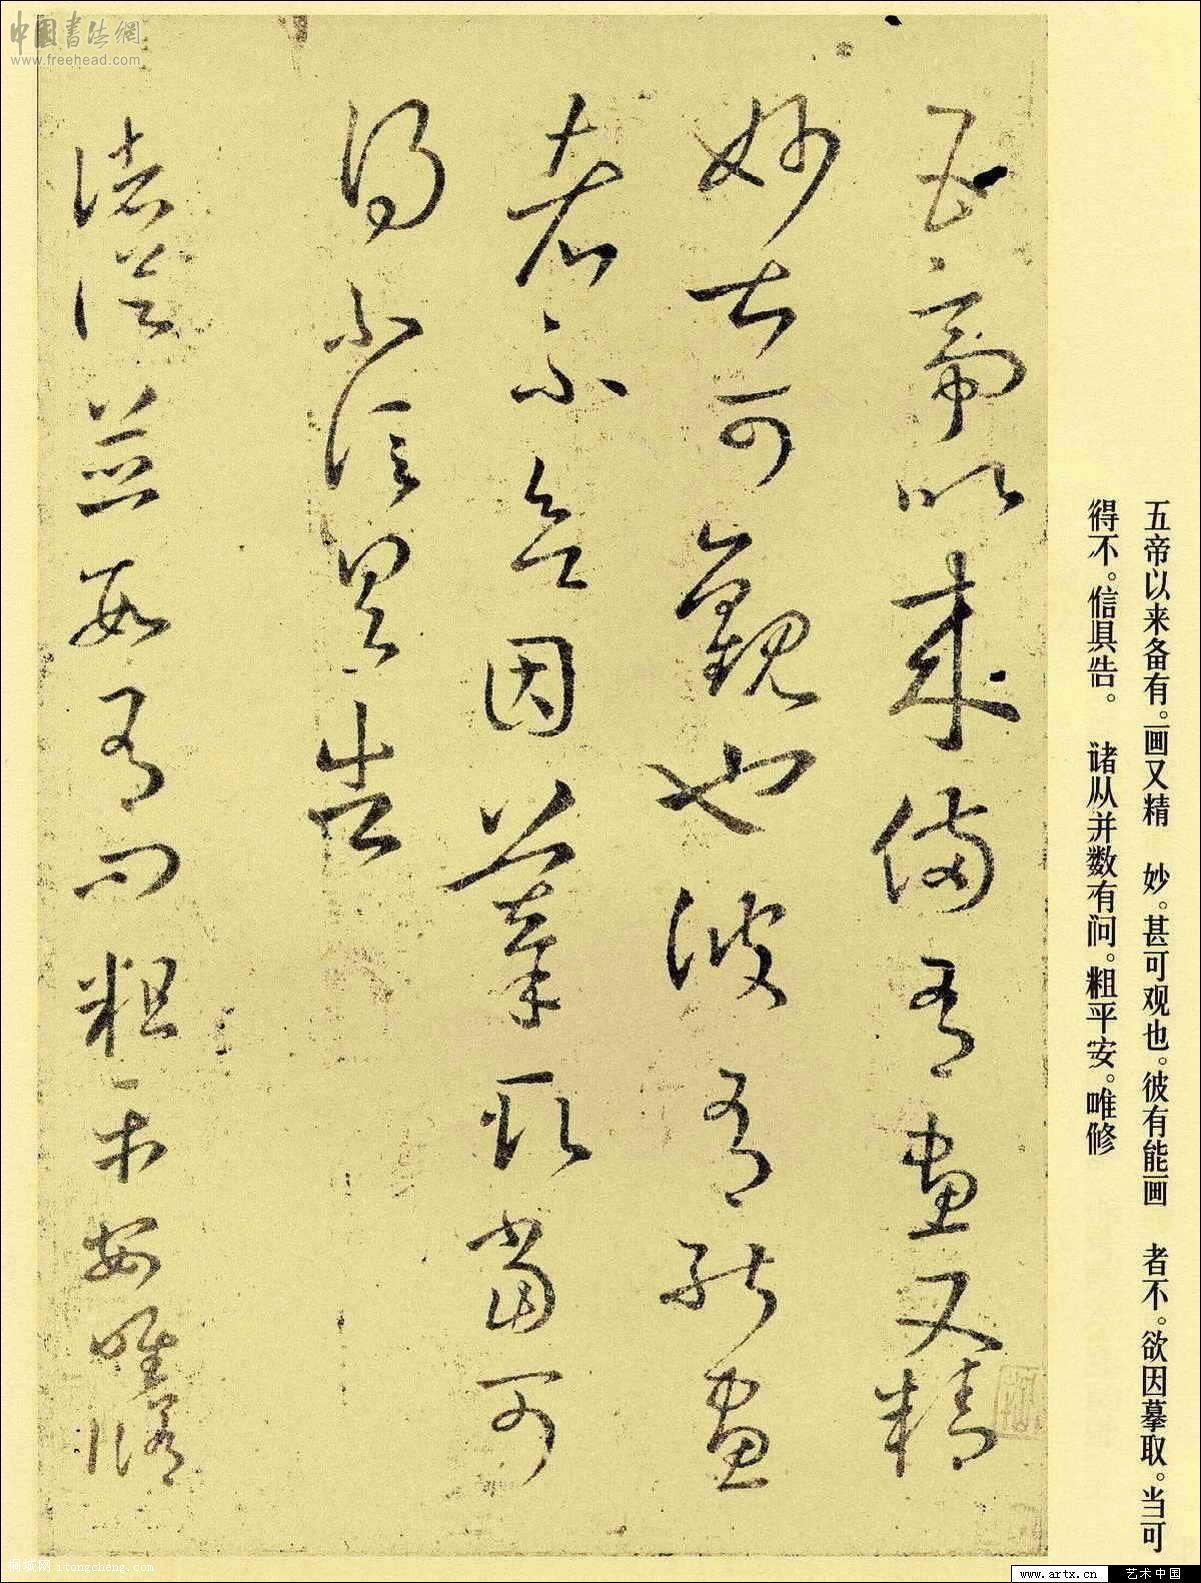 中国书法網
www.freehead.com
五帝以来备有。画又精 妙。甚可观也。彼有能画 者不。欲因摹取。当可
得不。信具告。 诸从并数有问。粗平安。唯修
五帝以來備有畫又精
妙甚可觀也彼有能畫
者不欲因摹取當可
得不信具告
諸從並數有問粗平安唯修
桐城网 itongcheng.com
www.artx.cn 艺术中国